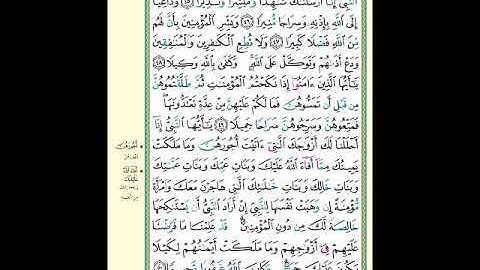 النَّبِىُّ إِنَّآ أَرْسَلْنَٰكَ شَٰهِدًا وَمُبَشِّرًا وَنَذِيرًا ٤٥ وَدَاعِيًا
إِلَى ٱللَّهِ بِإِذْنِهِۦ وَسِرَاجًا مُّنِيرًا ٤٦ وَبَشِّرِ ٱلْمُؤْمِنِينَ بِأَنَّ لَهُم
مِّنَ ٱللَّهِ فَضْلًا كَبِيرًا ٤٧ وَلَا تُطِعِ ٱلْكَٰفِرِينَ وَٱلْمُنَٰفِقِينَ
وَدَعْ أَذَىٰهُمْ وَتَوَكَّلْ عَلَى ٱللَّهِ ۚ وَكَفَىٰ بِٱللَّهِ وَكِيلًا ٤٨
يَٰٓأَيُّهَا ٱلَّذِينَ ءَامَنُوٓا۟ إِذَا نَكَحْتُمُ ٱلْمُؤْمِنَٰتِ ثُمَّ طَلَّقْتُمُوهُنَّ
مِن قَبْلِ أَن تَمَسُّوهُنَّ فَمَا لَكُمْ عَلَيْهِنَّ مِنْ عِدَّةٍ تَعْتَدُّونَهَا ۖ
فَمَتِّعُوهُنَّ وَسَرِّحُوهُنَّ سَرَاحًا جَمِيلًا ٤٩ يَٰٓأَيُّهَا ٱلنَّبِىُّ إِنَّآ
أَحْلَلْنَا لَكَ أَزْوَٰجَكَ ٱلَّٰتِىٓ ءَاتَيْتَ أُجُورَهُنَّ وَمَا مَلَكَتْ
يَمِينُكَ مِمَّآ أَفَآءَ ٱللَّهُ عَلَيْكَ وَبَنَاتِ عَمِّكَ وَبَنَاتِ عَمَّٰتِكَ
وَبَنَاتِ خَالِكَ وَبَنَاتِ خَٰلَٰتِكَ ٱلَّٰتِى هَاجَرْنَ مَعَكَ وَٱمْرَأَةً
مُّؤْمِنَةً إِن وَهَبَتْ نَفْسَهَا لِلنَّبِىِّ إِنْ أَرَادَ ٱلنَّبِىُّ أَن يَسْتَنكِحَهَا
خَالِصَةً لَّكَ مِن دُونِ ٱلْمُؤْمِنِينَ ۗ قَدْ عَلِمْنَا مَا فَرَضْنَا
عَلَيْهِمْ فِىٓ أَزْوَٰجِهِمْ وَمَا مَلَكَتْ أَيْمَٰنُهُمْ لِكَيْلَا
يَكُونَ عَلَيْكَ حَرَجٌ ۗ وَكَانَ ٱللَّهُ غَفُورًا رَّحِيمًا
أُجُورَهُنَّ